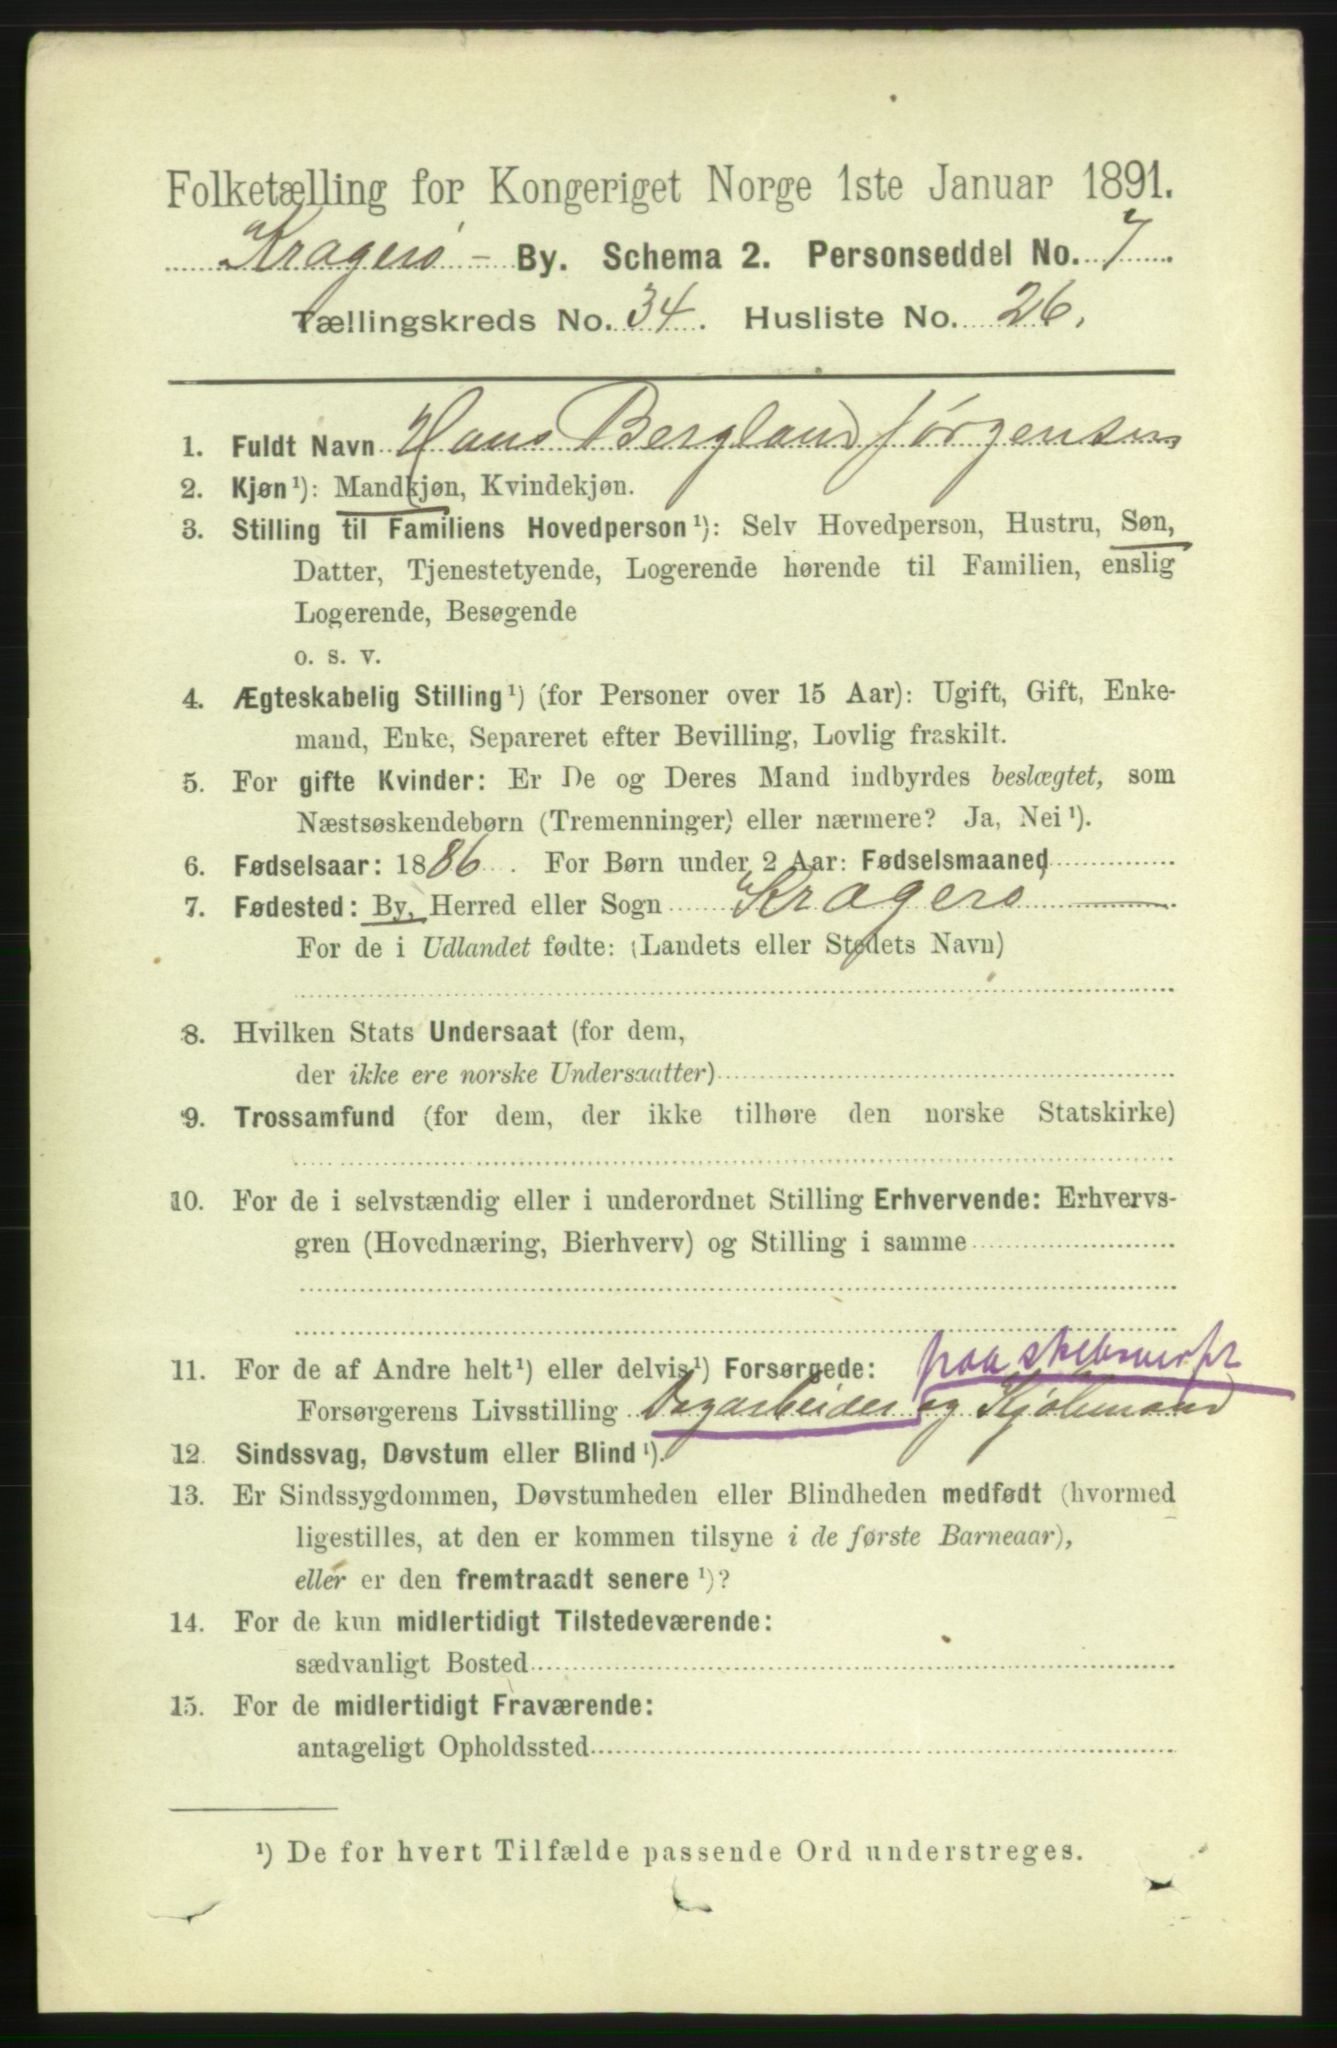 Folketælling for Kongeriget Norge 1ste Januar 1891.
Kragerø - By. Schema 2. Personseddel No. 7
Tællingskreds No. 34. Husliste No. 26.
1. Fuldt Navn Hans Bergland Jørgensen
2. Kjøn¹): Mandkjøn, Kvindekjøn.
3. Stilling til Familiens Hovedperson¹): Selv Hovedperson, Hustru, Søn,
Datter, Tjenestetyende, Logerende hørende til Familien, enslig
Logerende, Besøgende
o. s. v.
4. Ægteskabelig Stilling¹) (for Personer over 15 Aar): Ugift, Gift, Enke-
mand, Enke, Separeret efter Bevilling, Lovlig fraskilt.
5. For gifte Kvinder: Er De og Deres Mand indbyrdes beslægtet, som
Næstsøskendebørn (Tremenninger) eller nærmere? Ja, Nei¹).
6. Fødselsaar: 1886. For Børn under 2 Aar: Fødselsmaaned
7. Fødested: By, Herred eller Sogn Kragerø
For de i Udlandet fødte: (Landets eller Stedets Navn)
8. Hvilken Stats Undersaat (for dem,
der ikke ere norske Undersaatter)
9. Trossamfund (for dem, der ikke tilhøre den norske Statskirke)
10. For de i selvstændig eller i underordnet Stilling Erhvervende: Erhvervs-
gren (Hovednæring, Bierhverv) og Stilling i samme
11. For de af Andre helt¹) eller delvis¹) Forsørgede: paa
Forsørgerens Livsstilling Dagarbeider og Kjøbmand
12. Sindssvag, Døvstum eller Blind¹).
13. Er Sindssygdommen, Døvstumheden eller Blindheden medfødt (hvormed
ligestilles, at den er kommen tilsyne i de første Barneaar),
eller er den fremtraadt senere¹)?
14. For de kun midlertidigt Tilstedeværende:
sædvanligt Bosted
15. For de midlertidigt Fraværende:
antageligt Opholdssted
¹) De for hvert Tilfælde passende Ord understreges.